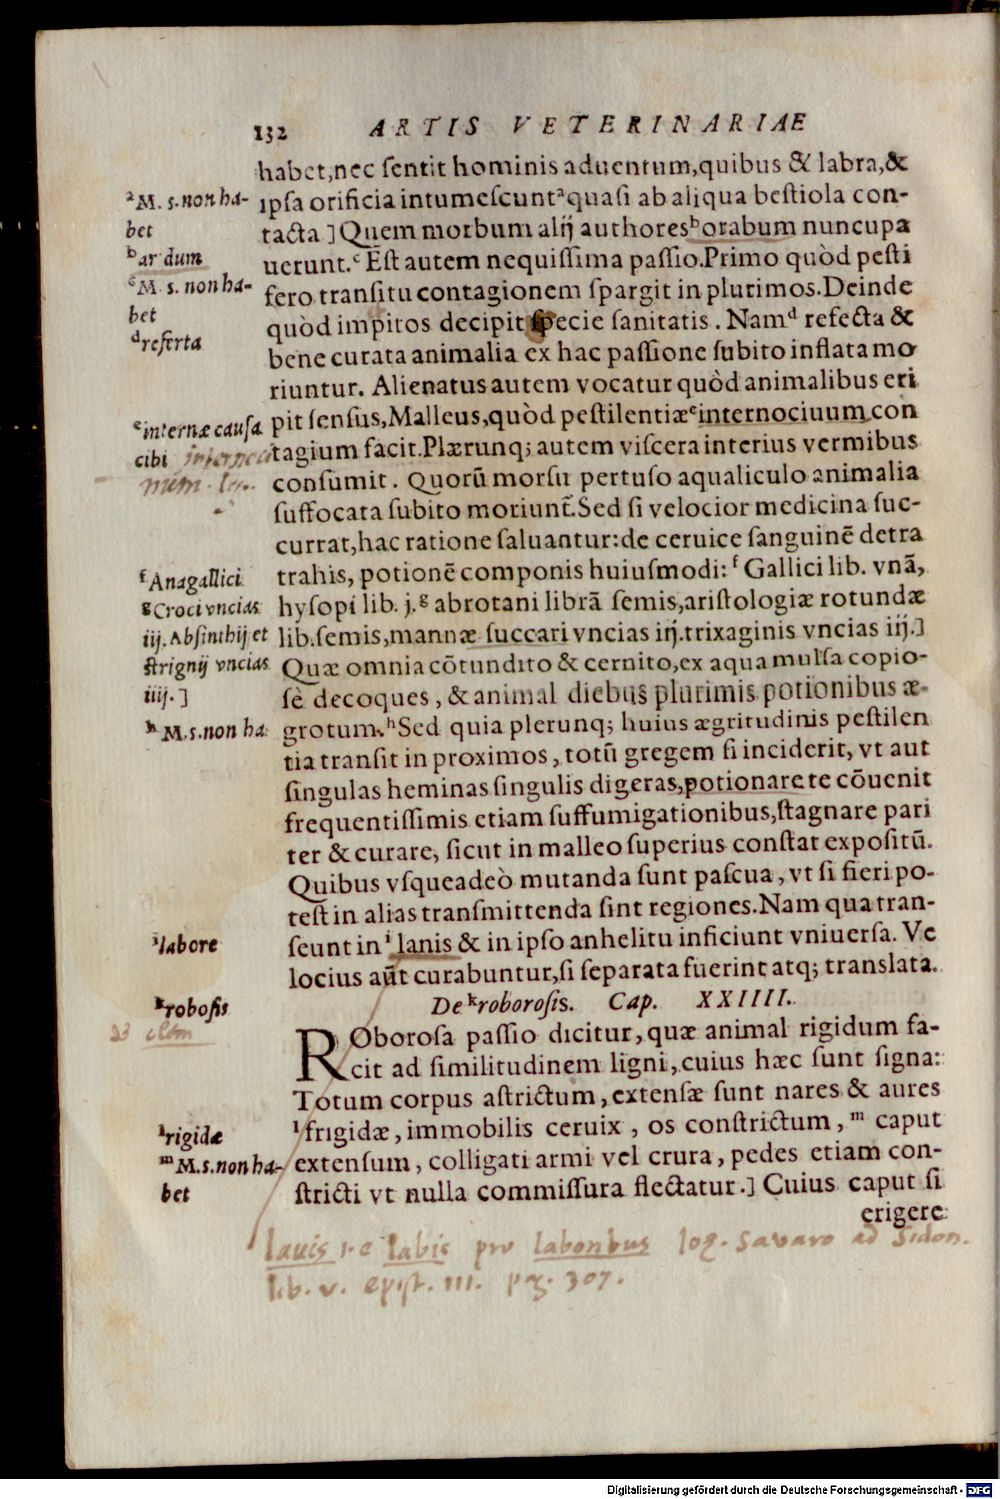 132 ARTIS VETERINARIAE
habet,nec sentit hominis aduentum,quibus & labra,&
ipsa orificia intumescuntᵃquasi ab aliqua bestiola con-
tacta ] Quem morbum alij authoresᵇorabum nuncupa
uerunt.ᶜ Est autem nequissima passio.Primo quòd pesti
fero transitu contagionem spargit in plurimos.Deinde
quòd impitos decipit specie sanitatis . Namᵈ refecta &
bene curata animalia ex hac passione subito inflata mo
riuntur. Alienatus autem vocatur quòd animalibus eri
pit sensus,Malleus,quòd pestilentiæᵉinternociuum con
tagium facit.Plærunq; autem viscera interius vermibus
consumit . Quorū morsu pertuso aqualiculo animalia
suffocata subito moriunt̃.Sed si velocior medicina suc-
currat,hac ratione saluantur:de ceruice sanguinē detra
trahis, potionē componis huiusmodi: ᶠ Gallici lib. vnā,
hysopi lib. j.ᵍ abrotani librā semis,aristologiæ rotundæ
lib.semis,mannæ succari vncias iij.trixaginis vncias iij.]
Quæ omnia cōtundito & cernito,ex aqua mulsa copio-
sè decoques , & animal diebus plurimis potionibus æ-
grotum.ʰSed quia plerunq; huius ægritudinis pestilen
tia transit in proximos , totū gregem si inciderit, vt aut
singulas heminas singulis digeras,potionare te cōuenit
frequentissimis etiam suffumigationibus,stagnare pari
ter & curare, sicut in malleo superius constat expositū.
Quibus vsqueadeò mutanda sunt pascua , vt si fieri po-
test in alias transmittenda sint regiones.Nam qua tran-
seunt in ⁱ lanis & in ipso anhelitu inficiunt vniuersa. Ve
locius aūt curabuntur,si separata fuerint atq; translata.
De ᵏroborosis. Cap. XXIIII.
ROborosa passio dicitur, quæ animal rigidum fa-
cit ad similitudinem ligni , cuius hæc sunt signa:
Totum corpus astrictum , extensæ sunt nares & aures
ˡfrigidæ , immobilis ceruix , os constrictum , ᵐ caput
extensum , colligati armi vel crura , pedes etiam con-
stricti vt nulla commissura flectatur.] Cuius caput si
erigere
ᵃM. s. non ha-
bet
ᵇar dum
ᶜM. s. non ha-
bet
ᵈreferta
ᵉinternæ causa
cibi
ᶠAnagallici
ᵍCroci vncias
iij. Absinthij et
strignij vncias
iiij. ]
ʰ M.s.non ha:
ⁱlabore
ᵏrobosis
ˡrigidæ
ᵐM.s.non ha-
bet
lauis i.e labis pro laboribus log. Savaro ad Sidon.
lib. v. epist. III. pag. 307.
Digitalisierung gefördert durch die Deutsche Forschungsgemeinschaft - DFG